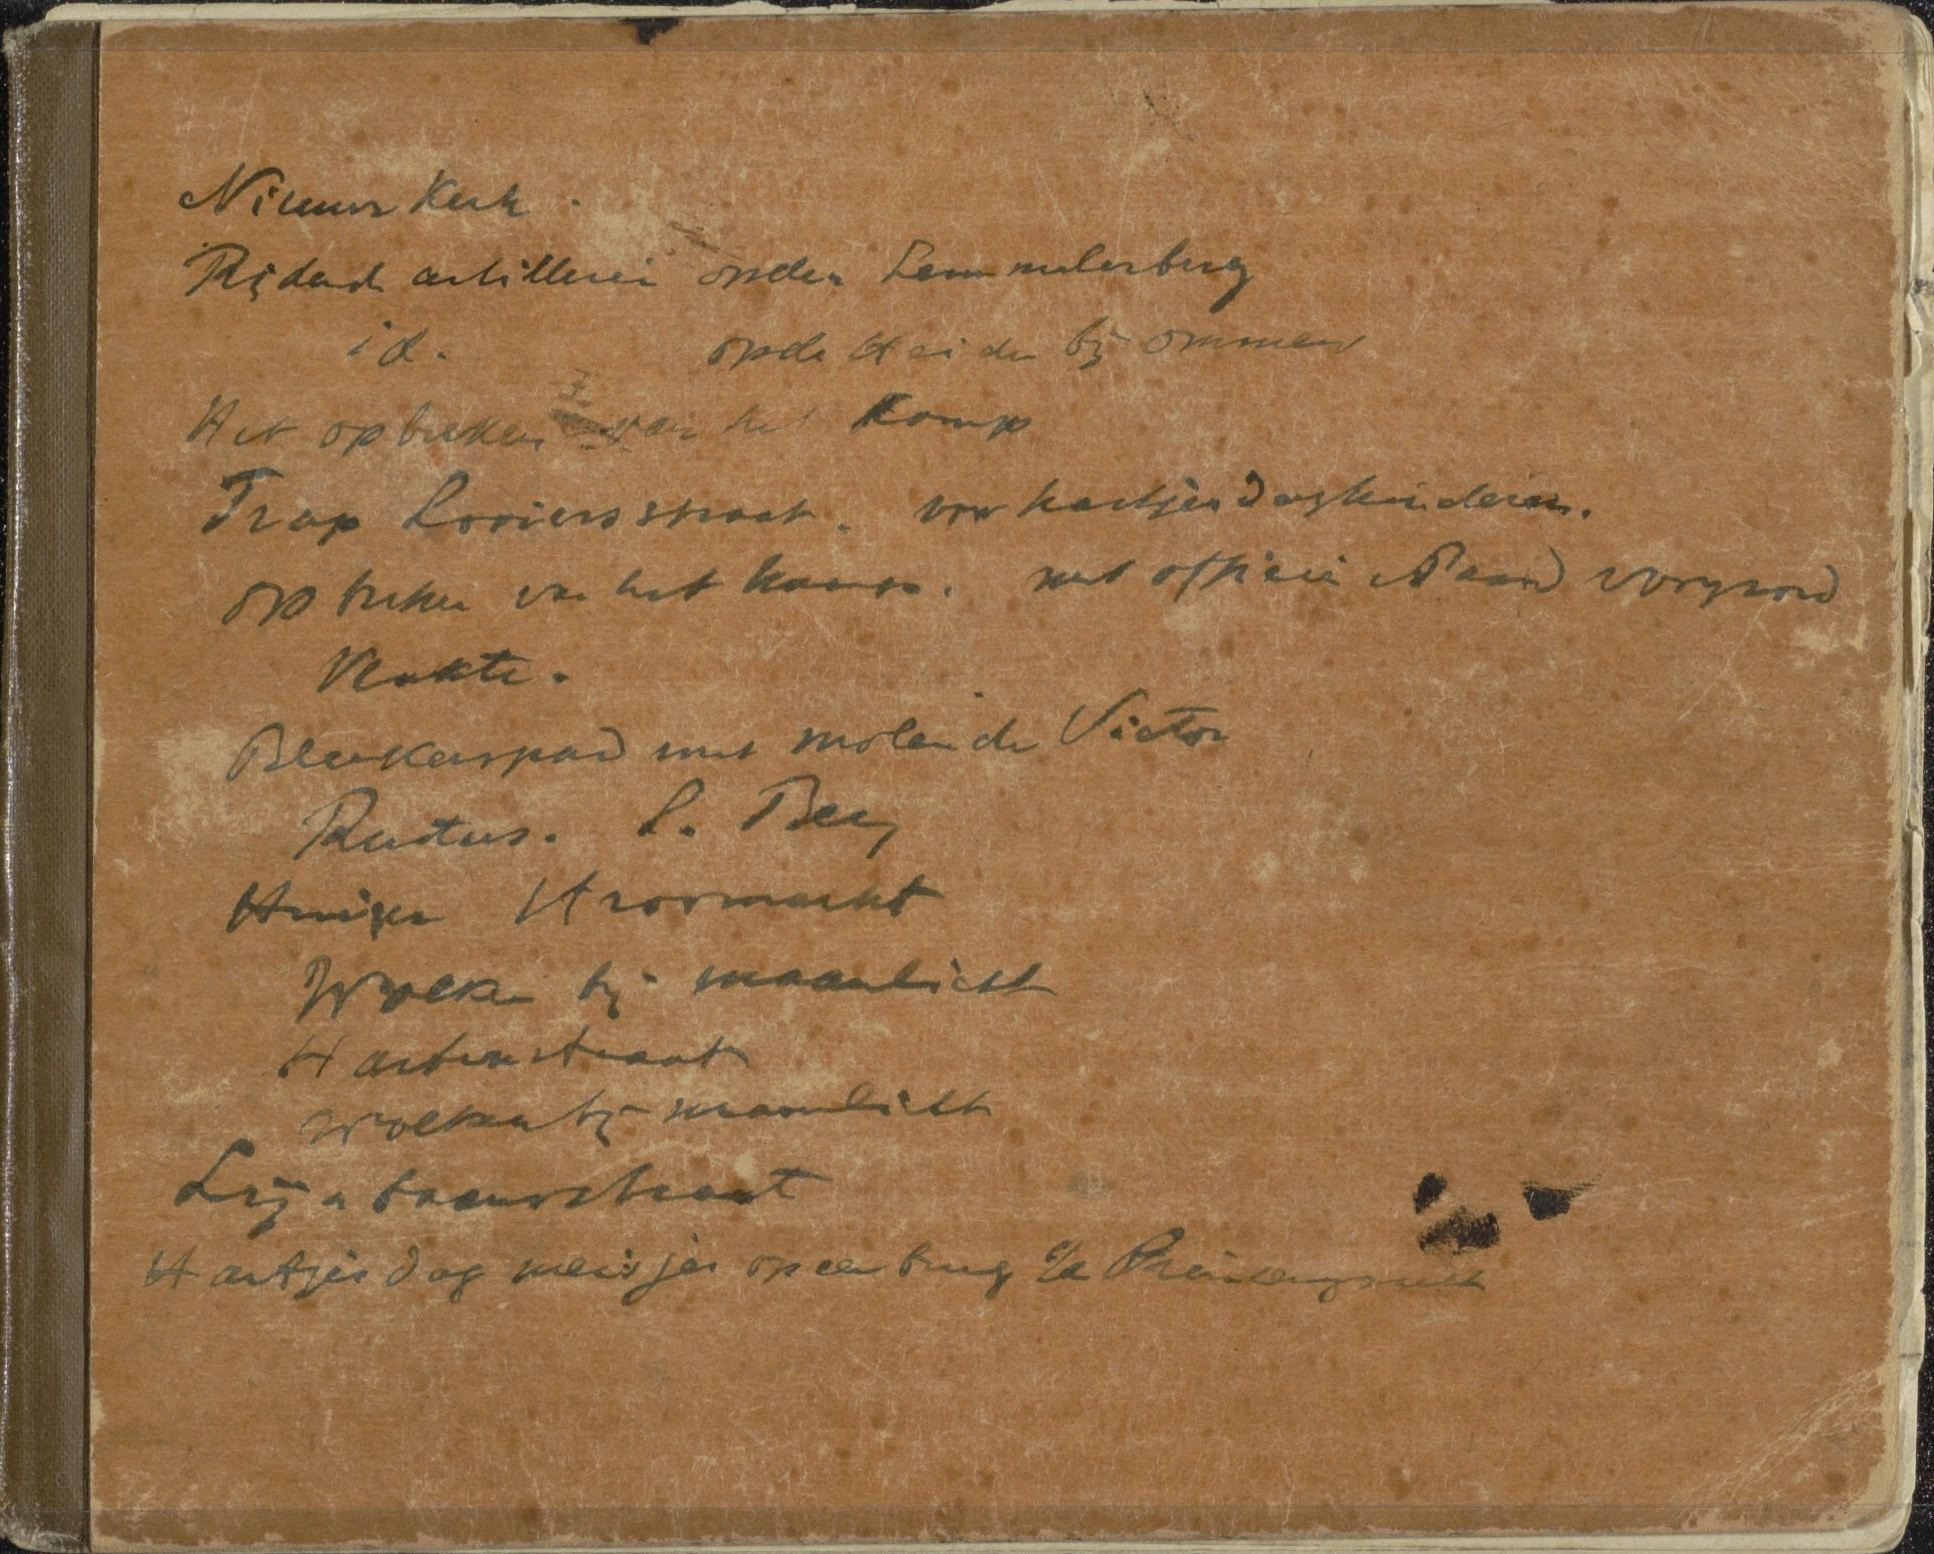 Nieuwe Kerk.
Rijdende artillerie op den Lemmelerberg
id. op de Heide bij Ommen
Het opbreken van het Kamp
Trap Looiersstraat. voor hartjesdagkinderen.
opbreken van het kamp. met officier Paard voorgrond
Vlakte.
Blekerspad met molen de Victor
Rustus. L. Berg
Huisjes Stroomarkt
Wolken bij maanlicht
Hartenstraat
Wolken bij maanlicht
Lijnbaanstraat
Hartjesdag meisjes op een brug o/d Prinsengracht